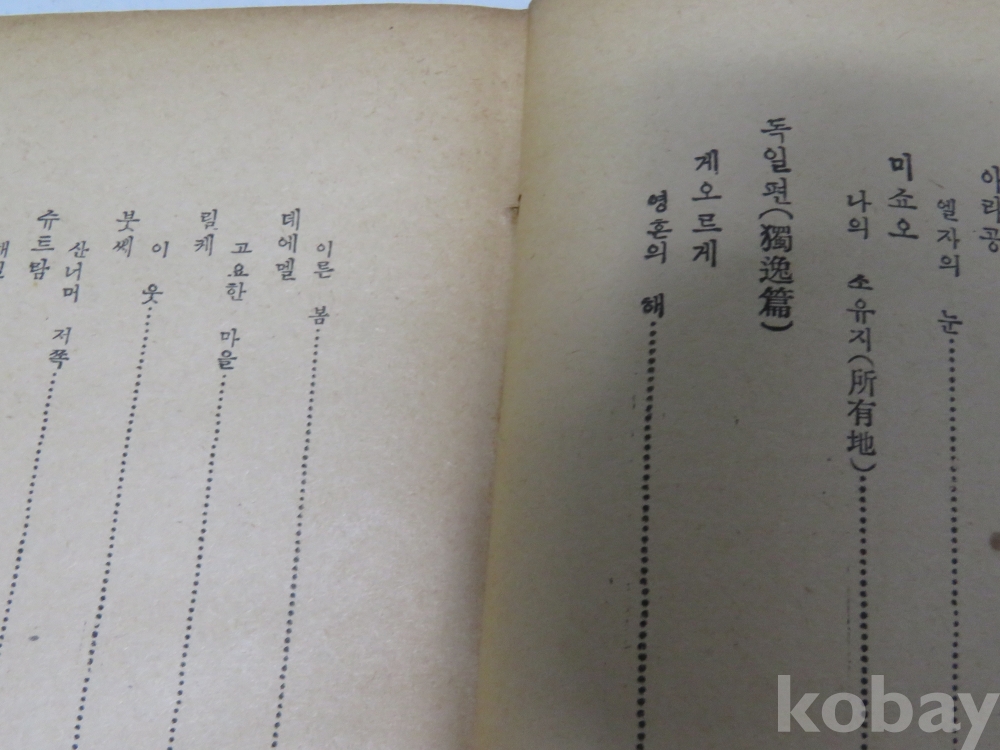 아라공
엘자의 눈
미쇼오
나의 소유지(所有地)
독일편(獨逸篇)
게오르게
영혼의 해
이른 봄
데에멜
고요한 마을
릴케
이 웃
붓쎄
산너머 저쪽
슈트람
kobay